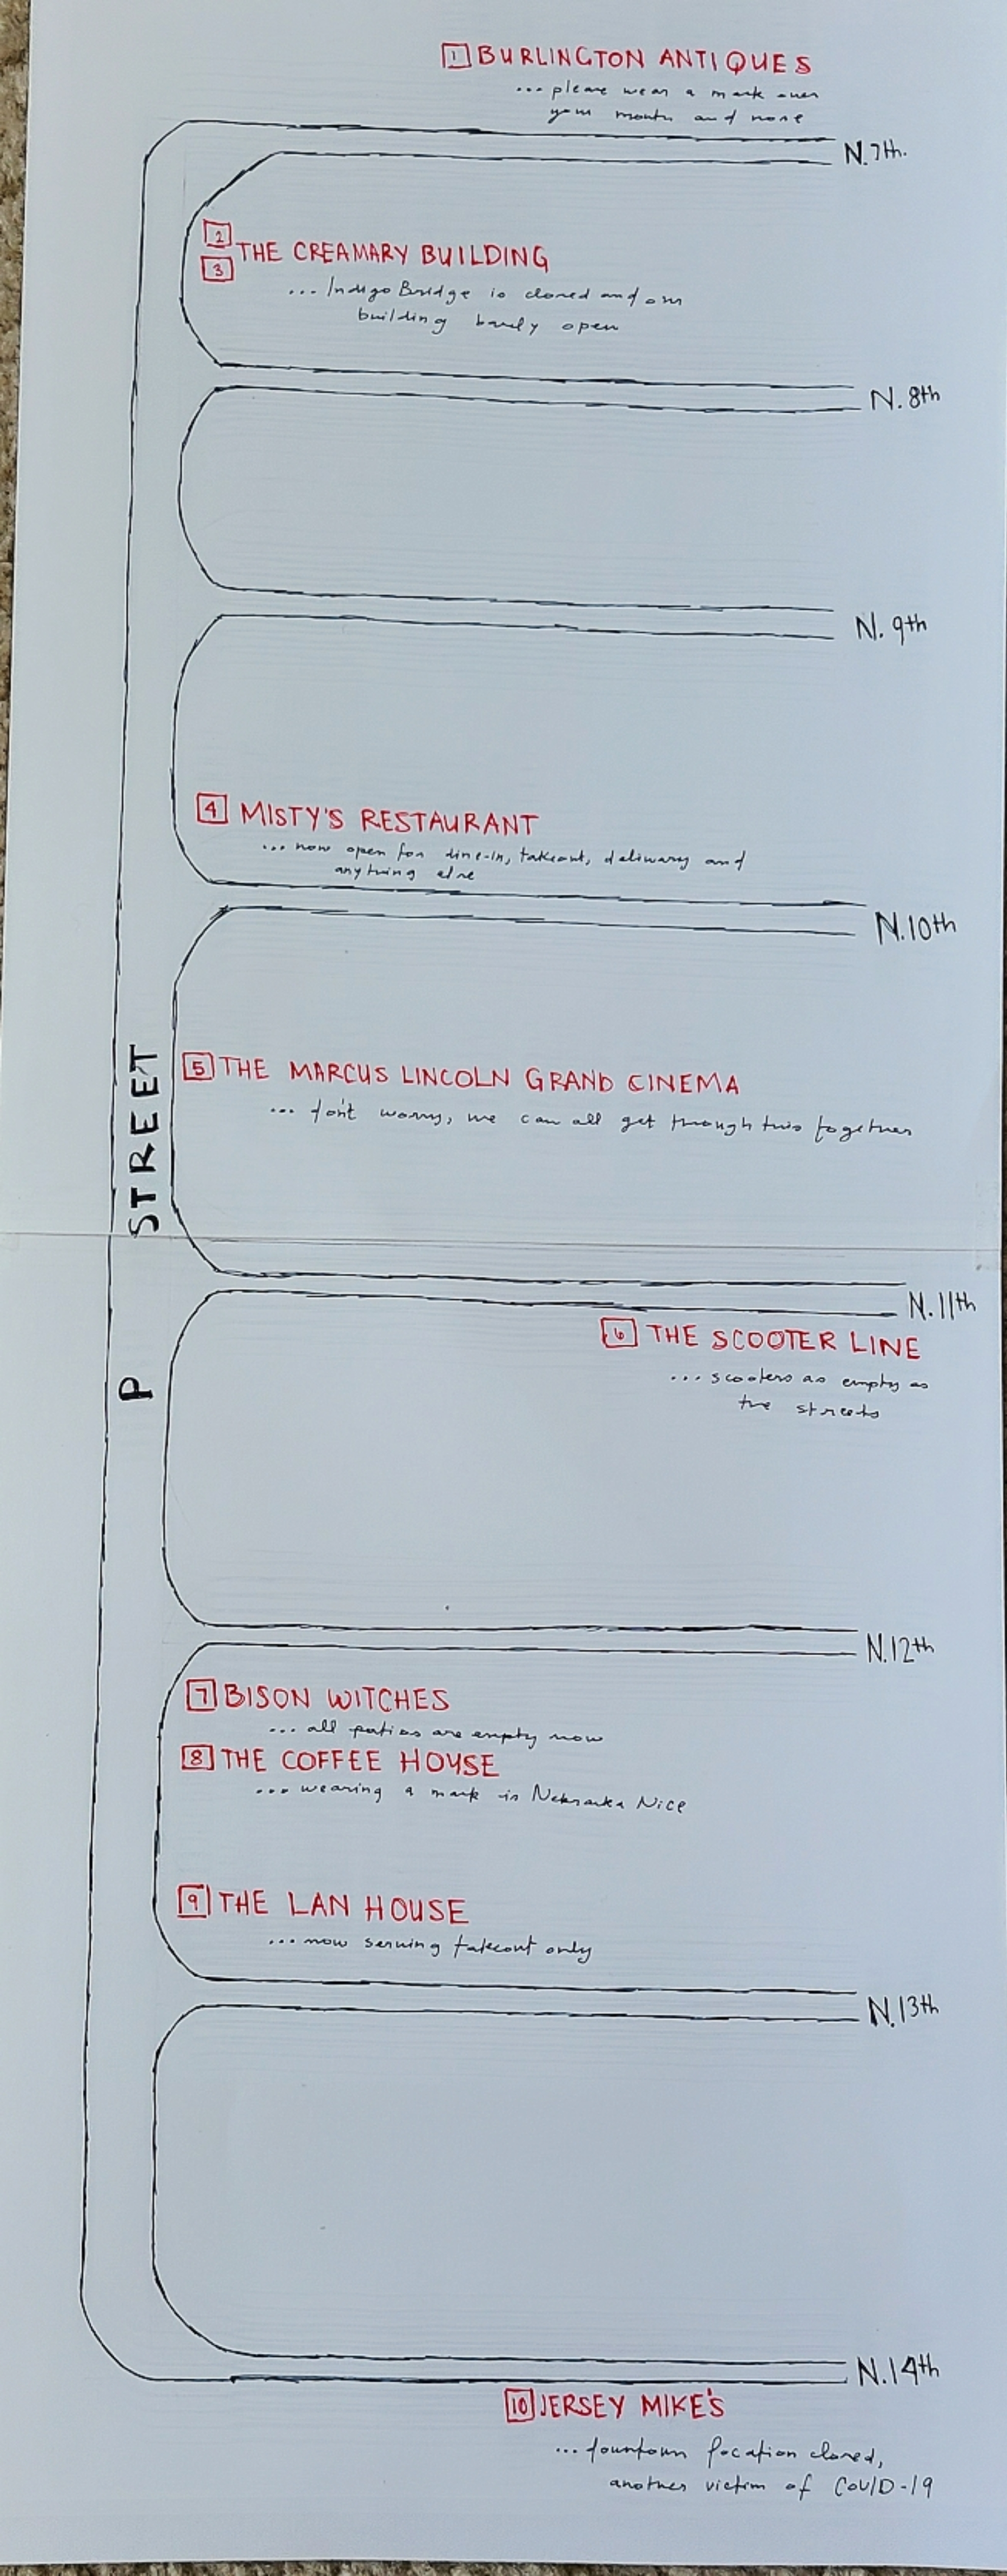 1 BURLINGTON ANTIQUES
... please wear a mask over
your mouth and nose
N. 7th.
2
3 THE CREAMARY BUILDING
... Indigo Bridge is closed and our
building barely open
N. 8th
N. 9th
4 MISTY'S RESTAURANT
... now open for dine-in, takeout, delivery and
anything else
N. 10th
5 THE MARCUS LINCOLN GRAND CINEMA
... don't worry, we can all get through this together
P STREET
N. 11th
6 THE SCOOTER LINE
... scooters as empty as
the streets
N. 12th
7 BISON WITCHES
... all patios are empty now
8 THE COFFEE HOUSE
... wearing a mask is Nebraska Nice
9 THE LAN HOUSE
... now serving takeout only
N. 13th
N. 14th
10 JERSEY MIKE'S
... downtown location closed,
another victim of COVID-19